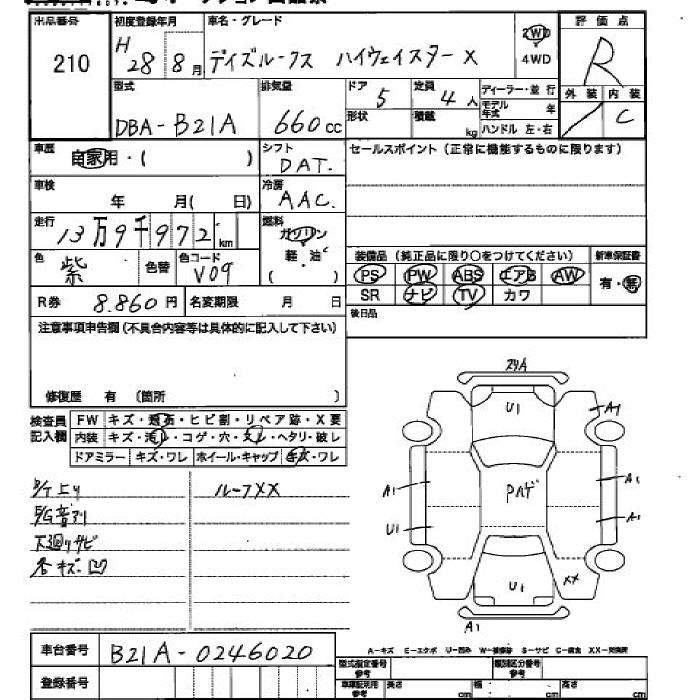 出品番号 初度登録年月 車名・グレード 評価点
210 H 28 8月 デイズルークス ハイウェイスターX 2WD 4WD R
型式 排気量 ドア 5 定員 4人 ディーラー・並行 外装 内装
DBA-B21A 660cc 形状 積載 kg モデル年式 年 C
ハンドル 左・右
車歴 自家用・( ) シフト DAT. セールスポイント(正常に機能するものに限ります)
車検 年 月( 日) 冷房 AAC.
走行 13万9千972km 燃料 ガソリン 軽・油 ( )
色 紫 色替 色コード V09
装備品(純正品に限り○をつけてください) 新車保証書
PS PW ABS エアB AW 有・無
SR ナビ TV カワ
R券 8.860円 名変期限 月 日 後日品
注意事項申告欄(不具合内容等は具体的に記入して下さい)
修復歴 有 (箇所 )
検査員記入欄 FW キズ・飛石・ヒビ割・リペア跡・X要
内装 キズ・汚レ・コゲ・穴・スレ・ヘタリ・破レ
ドアミラー キズ・ワレ ホイール・キャップ キズ・ワレ
ルーフXX
下廻りサビ
U1
A1
A1 Pハゲ A1
U1 A1
U1 XX
A1
A-キズ E-エクボ U-凹み W-補修跡 S-サビ C-腐食 XX-交換済
車台番号 B21A-0246020
登録番号
型式指定番号 参考 類別区分番号 参考
車車証明用 参考 長さ cm 幅 cm 高さ cm